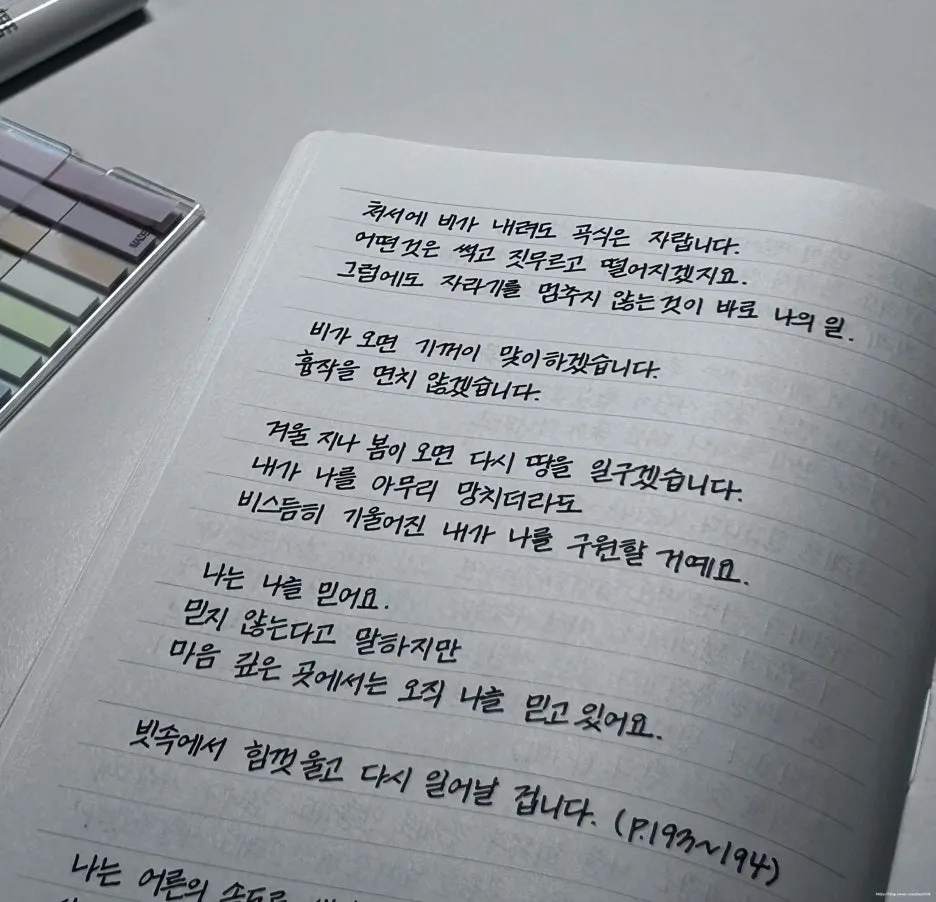 처서에 비가 내려도 곡식은 자랍니다.
어떤것은 썩고 짓무르고 떨어지겠지요.
그럼에도 자라기를 멈추지 않는것이 바로 나의 일.
비가 오면 기꺼이 맞이하겠습니다.
흉작을 면치 않겠습니다.
겨울 지나 봄이 오면 다시 땅을 일구겠습니다.
내가 나를 아무리 망치더라도
비스듬히 기울어진 내가 나를 구원할 거예요.
나는 나를 믿어요.
믿지 않는다고 말하지만
마음 깊은 곳에서는 오직 나를 믿고 있어요.
빗속에서 힘껏 울고 다시 일어날 겁니다. (P.193~194)
나는 어른의